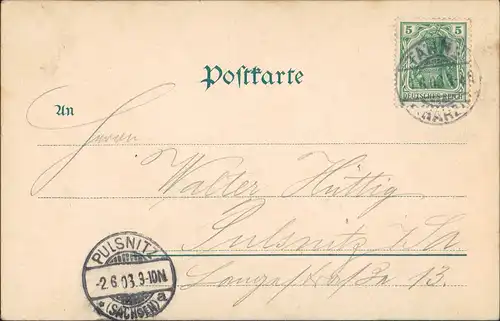 5 5
TANNE
DEUTSCHES REICH
(HARZ)
Postkarte
An
Herrn
Walter Hüttig
Pulsnitz i. Sa.
Langestraße 13.
PULSNITZ
-2.6.03.9-10N
*(SACHSEN)a